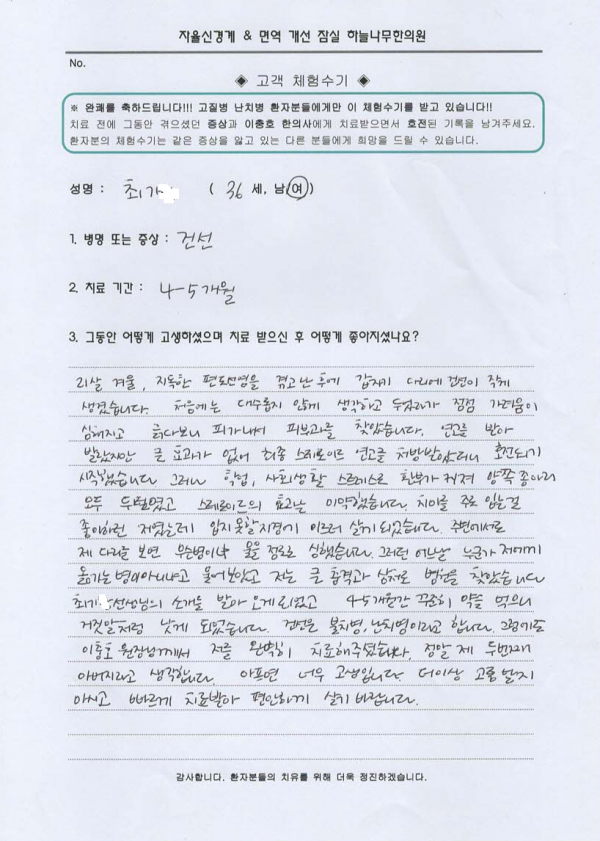 자율신경계 & 면역 개선 잠실 하늘나무한의원
No.
◈ 고객 체험수기 ◈
※ 완쾌를 축하드립니다!!! 고질병 난치병 환자분들에게만 이 체험수기를 받고 있습니다!!
치료 전에 그동안 겪으셨던 증상과 이충호 한의사에게 치료받으면서 호전된 기록을 남겨주세요.
환자분의 체험수기는 같은 증상을 앓고 있는 다른 분들에게 희망을 드릴 수 있습니다.
성명 : 최가 ( 36 세, 남 여 )
1. 병명 또는 증상 : 건선
2. 치료 기간 : 4-5개월
3. 그동안 어떻게 고생하셨으며 치료 받으신 후 어떻게 좋아지셨나요?
21살 겨울, 지독한 편도선염을 겪고난 후에 갑자기 다리에 건선이 작게
생겼습니다. 처음에는 대수롭지 않게 생각하고 두었다가 점점 가려움이
심해지고 긁다보니 피가나서 피부과를 찾았습니다. 연고를 받아
발랐지만 큰 효과가 없어 최종 스테로이드 연고를 처방받았더니 호전되기
시작했습니다. 그러나 학업, 사회생활 스트레스로 환부가 커져 양쪽 종아리
모두 뒤덮였고 스테로이드의 효과는 미약했습니다. 치마를 주로 입는걸
좋아하던 저였는데 입지 못할지경에 이르러 살게 되었습니다. 주변에서도
제 다리를 보면 무슨병이냐 물을 정도로 심했습니다. 그러던 어느날 누군가 저에게
옮기는 병이아니냐고 물어보았고 저는 큰 충격과 상처로 병원을 찾았습니다
최가 선생님의 소개를 받아 오게되었고 4-5개월간 꾸준히 약을 먹으니
거짓말처럼 낫게 되었습니다. 건선은 불치병, 난치병이라고 합니다. 그럼에도
이충호 원장님께서 저를 완벽히 치료해주셨습니다. 정말 제 두번째
아버지라고 생각합니다. 아프면 너무 고생입니다. 더이상 고름 앓지
마시고 빠르게 치료받아 편안하게 살기 바랍니다.
감사합니다. 환자분들의 치유를 위해 더욱 정진하겠습니다.